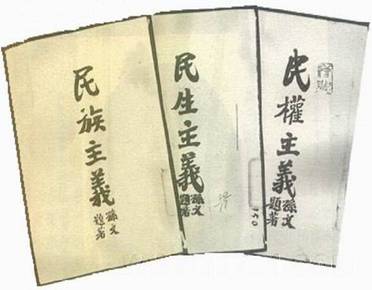 民族主義
孫文
題著
民生主義
孫文
題著
民權主義
孫文
題著